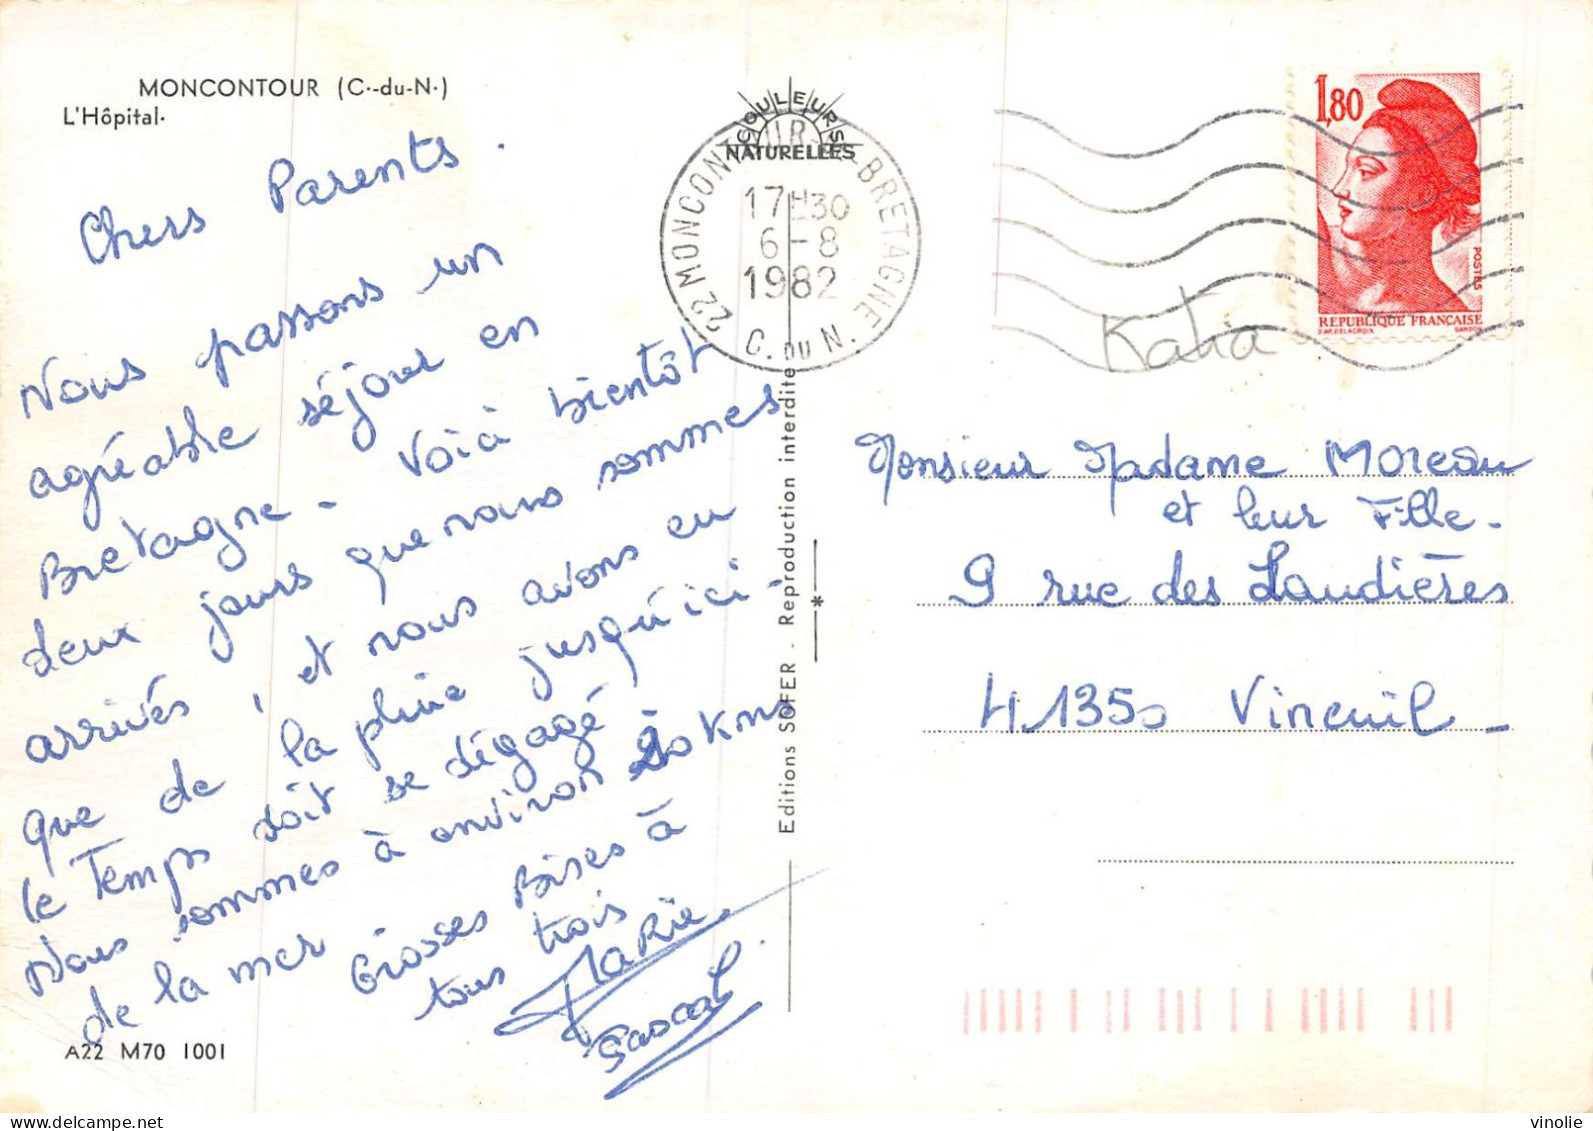 MONCONTOUR (C.-du-N.)
L'Hôpital.
Chers Parents.
Nous passons un
agréable séjour en
Bretagne - Voià bientôt
deux jours que nous sommes
arrivés, et nous avons eu
que de la pluie jusqu'ici -
le Temps doit se dégagé.
Nous sommes à environ 20 Kms
de la mer
Grosses Bises à
tous trois
MARIE
Pascal
A22 M70 1001
COULEURS
NATURELLES
22 MONCONTOUR-BRETAGNE
17H30
6-8
1982
C. DU N.
Editions SOFER. Reproduction interdite
1,80
POSTES
REPUBLIQUE FRANÇAISE
D'AP. DELACROIX GANDON
Katia
Monsieur Madame Moreau
et leur Fille.
9 rue des Laudières
41350 Vineuil -
vinolie